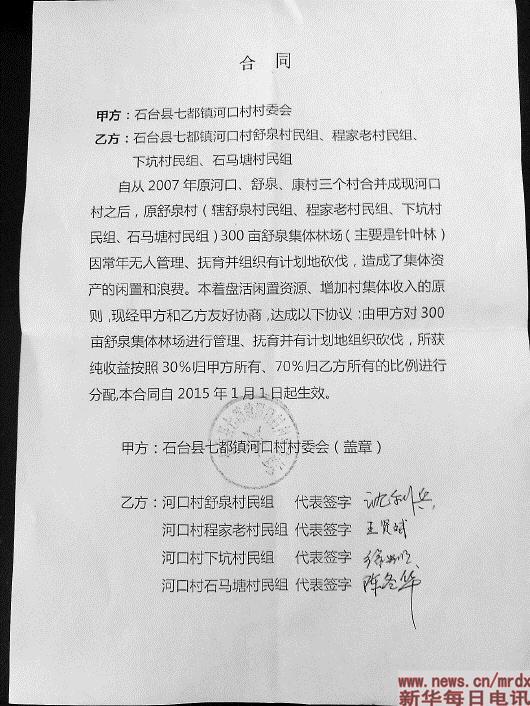 合 同
甲方：石台县七都镇河口村村委会
乙方：石台县七都镇河口村舒泉村民组、程家老村民组、
下坑村民组、石马塘村民组
自从 2007 年原河口、舒泉、康村三个村合并成现河口
村之后，原舒泉村（辖舒泉村民组、程家老村民组、下坑村
民组、石马塘村民组）300 亩舒泉集体林场（主要是针叶林）
因常年无人管理、抚育并组织有计划地砍伐，造成了集体资
产的闲置和浪费。本着盘活闲置资源、增加村集体收入的原
则，现经甲方和乙方友好协商，达成以下协议：由甲方对 300
亩舒泉集体林场进行管理、抚育并有计划地组织砍伐，所获
纯收益按照 30%归甲方所有、70%归乙方所有的比例进行
分配,本合同自 2015 年 1 月 1 日起生效。
甲方：石台县七都镇河口村村委会（盖章）
乙方：河口村舒泉村民组 代表签字
河口村程家老村民组 代表签字 王贤斌
河口村下坑村民组 代表签字
河口村石马塘村民组 代表签字
www.news.cn/mrdx
新华每日电讯